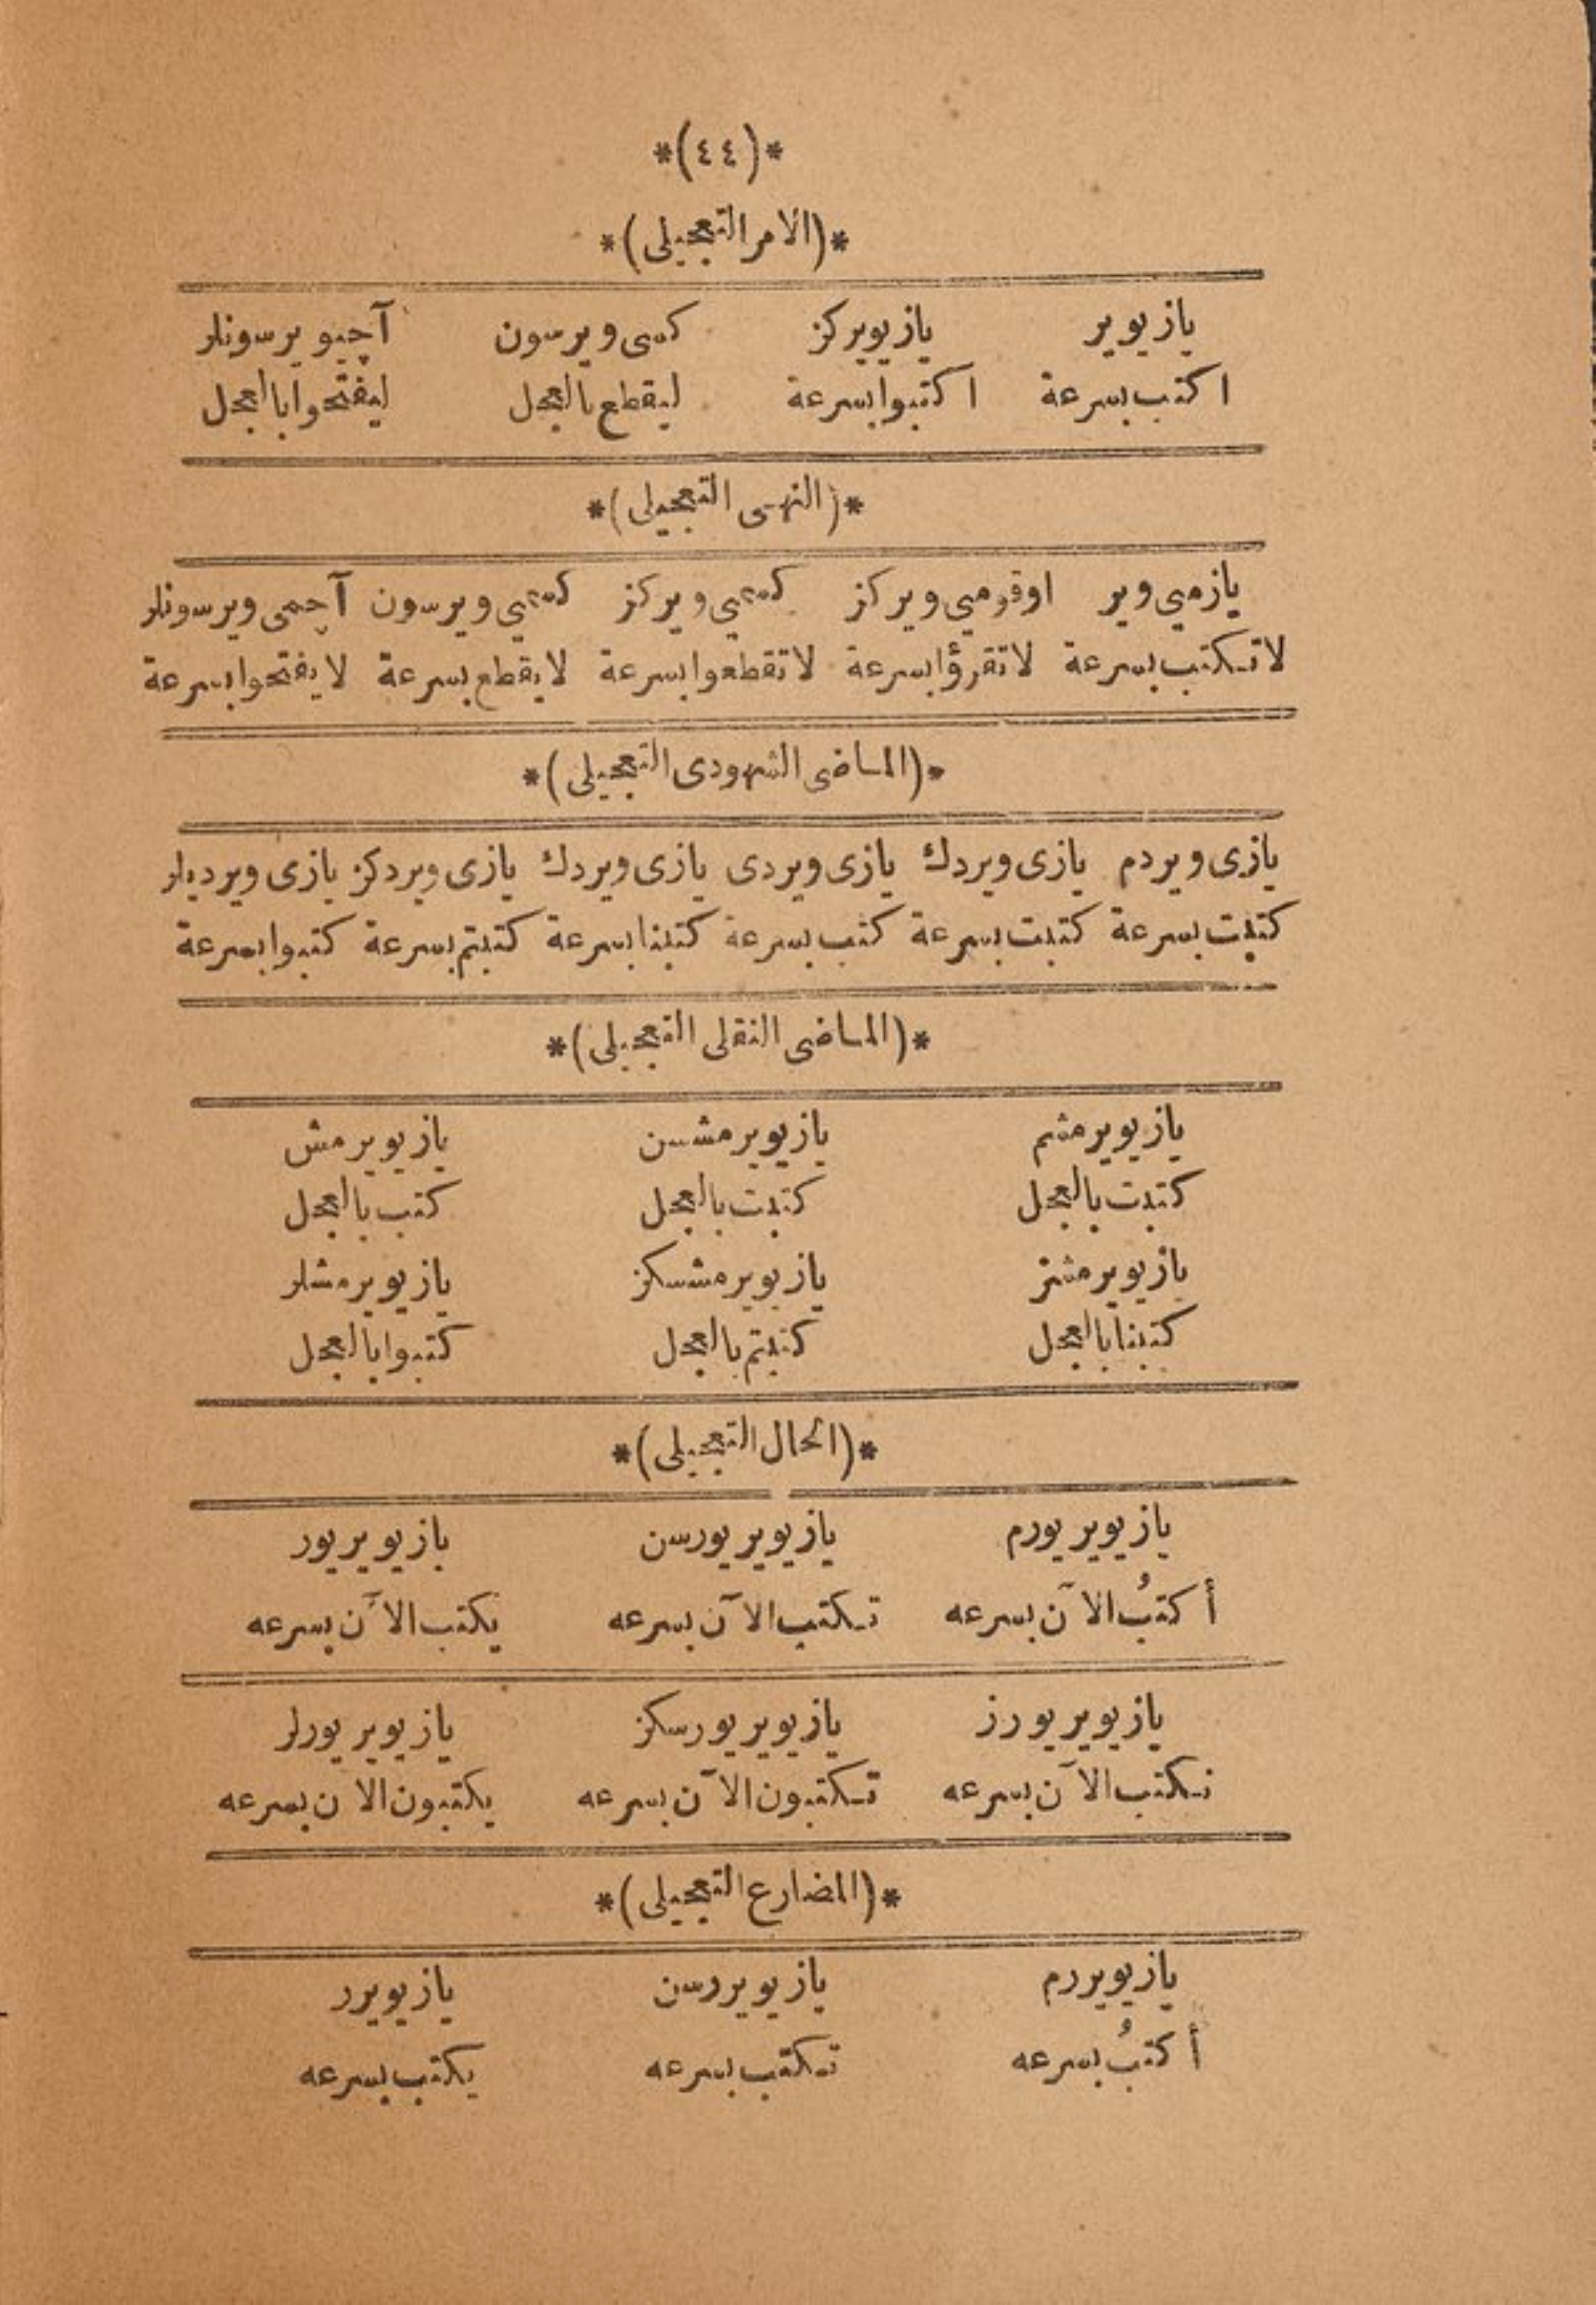 *(٤٤)*
*(الامر التعجيلى)*
يازيوير يازيويركز كسى ويرسون آچيويرسونلر
اكتب بسرعة اكتبوا بسرعة ليقطع بالعجل ليفتحوا بالعجل
*(النهى التعجيلى)*
يازميى وير اوقوميى ويركز كسميى ويركز كسميى ويرسون آچمى ويرسونلر
لا تكتب بسرعة لا تقرؤا بسرعة لا تقطعوا بسرعة لا يقطع بسرعة لا يفتحوا بسرعة
*(الماضى الشهودى التعجيلى)*
يازى ويردم يازى ويردك يازى ويردى يازى ويردك يازى ويردكز يازى ويرديلر
كتبت بسرعة كتبت بسرعة كتب بسرعة كتبنا بسرعة كتبتم بسرعة كتبوا بسرعة
*(الماضى النقلى التعجيلى)*
يازيويرمشم يازيويرمشسن يازيويرمش
كتبت بالعجل كتبت بالعجل كتب بالعجل
يازيويرمشز يازيويرمشسكز يازيويرمشلر
كتبنا بالعجل كتبتم بالعجل كتبوا بالعجل
*(الحال التعجيلى)*
يازيويريورم يازيويريورسن يازيويريور
أكتبُ الآن بسرعه تكتب الآن بسرعه يكتب الآن بسرعه
يازيويريورز يازيويريورسكز يازيويريورلر
نكتب الآن بسرعه تكتبون الآن بسرعه يكتبون الان بسرعه
*(المضارع التعجيلى)*
يازيويررم يازيويررسن يازيويرر
أكتبُ بسرعه تكتب بسرعه يكتب بسرعه